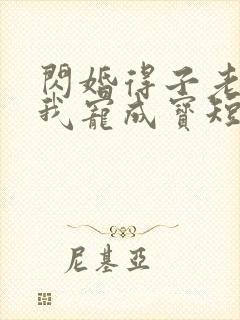 閃婚得子老
我寵成寶短
尼基亞